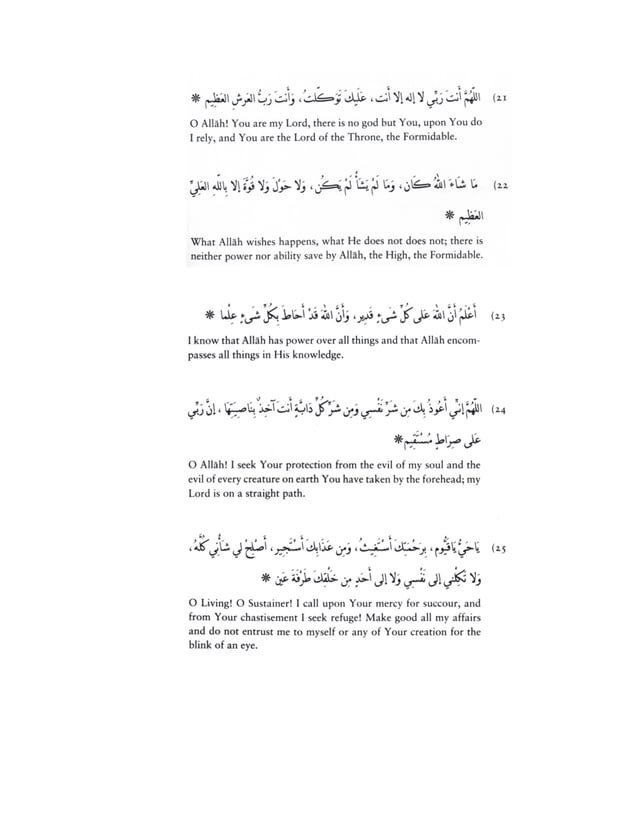 21) اللّهُمَّ أَنتَ رَبِّي لا إله إلا أَنت، عَلَيكَ تَوَكّلتُ، وَأَنتَ رَبُّ العَرشِ العَظِيم *
O Allāh! You are my Lord, there is no god but You, upon You do
I rely, and You are the Lord of the Throne, the Formidable.
22) مَا شَاءَ اللهُ كَان، وَمَا لَمْ يَشَأْ لَمْ يَكُن، وَلا حَوْلَ وَلا قُوَّةَ إلا بِاللّهِ العَلِيِّ
العَظِيم *
What Allāh wishes happens, what He does not does not; there is
neither power nor ability save by Allāh, the High, the Formidable.
23) أَعْلَمُ أَنَّ اللهَ عَلى كُلِّ شَىءٍ قَدِير، وَأَنَّ اللهَ قَدْ أَحَاطَ بِكُلِّ شَىءٍ عِلْما *
I know that Allāh has power over all things and that Allāh encom-
passes all things in His knowledge.
24) اللّهُمَّ إنِّي أَعُوذُ بِكَ مِن شَرِّ نَفْسِي وَمِن شَرِّ كُلِّ دَابَّةٍ أَنتَ آخِذٌ بِنَاصِيَتِهَا، إنَّ رَبِّي
عَلى صِرَاطٍ مُسْتَقِيم *
O Allāh! I seek Your protection from the evil of my soul and the
evil of every creature on earth You have taken by the forehead; my
Lord is on a straight path.
25) يَاحَيُّ يَاقَيُّوم، بِرَحْمَتِكَ أَسْتَغِيثُ، وَمِن عَذَابِكَ أَسْتَجِير، أَصْلِحْ لي شَأْنِي كُلَّهُ،
وَلا تَكِلْنِي إلى نَفْسِي وَلا إلى أَحَدٍ مِن خَلْقِكَ طَرْفَةَ عَين *
O Living! O Sustainer! I call upon Your mercy for succour, and
from Your chastisement I seek refuge! Make good all my affairs
and do not entrust me to myself or any of Your creation for the
blink of an eye.